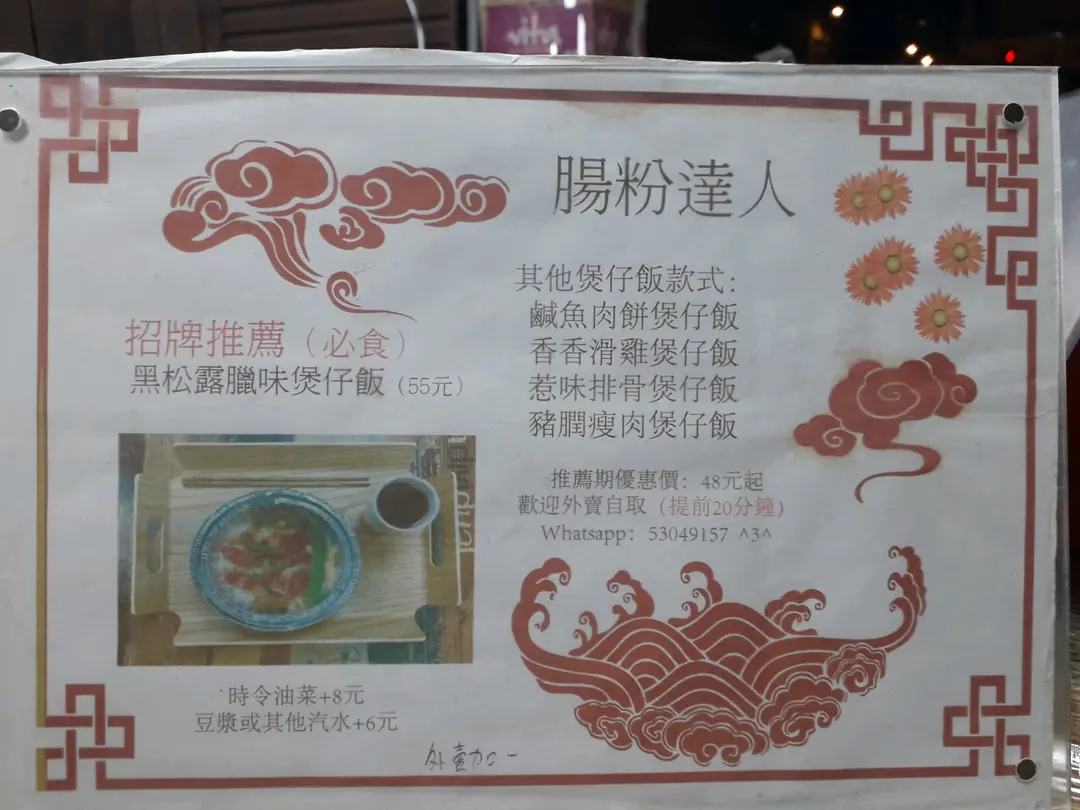 腸粉達人
招牌推薦（必食）
黑松露臘味煲仔飯（55元）
時令油菜+8元
豆漿或其他汽水+6元
外壹加一
其他煲仔飯款式：
鹹魚肉餅煲仔飯
香香滑雞煲仔飯
惹味排骨煲仔飯
豬膶瘦肉煲仔飯
推薦期優惠價：48元起
歡迎外賣自取（提前20分鐘）
Whatsapp：53049157 ^3^